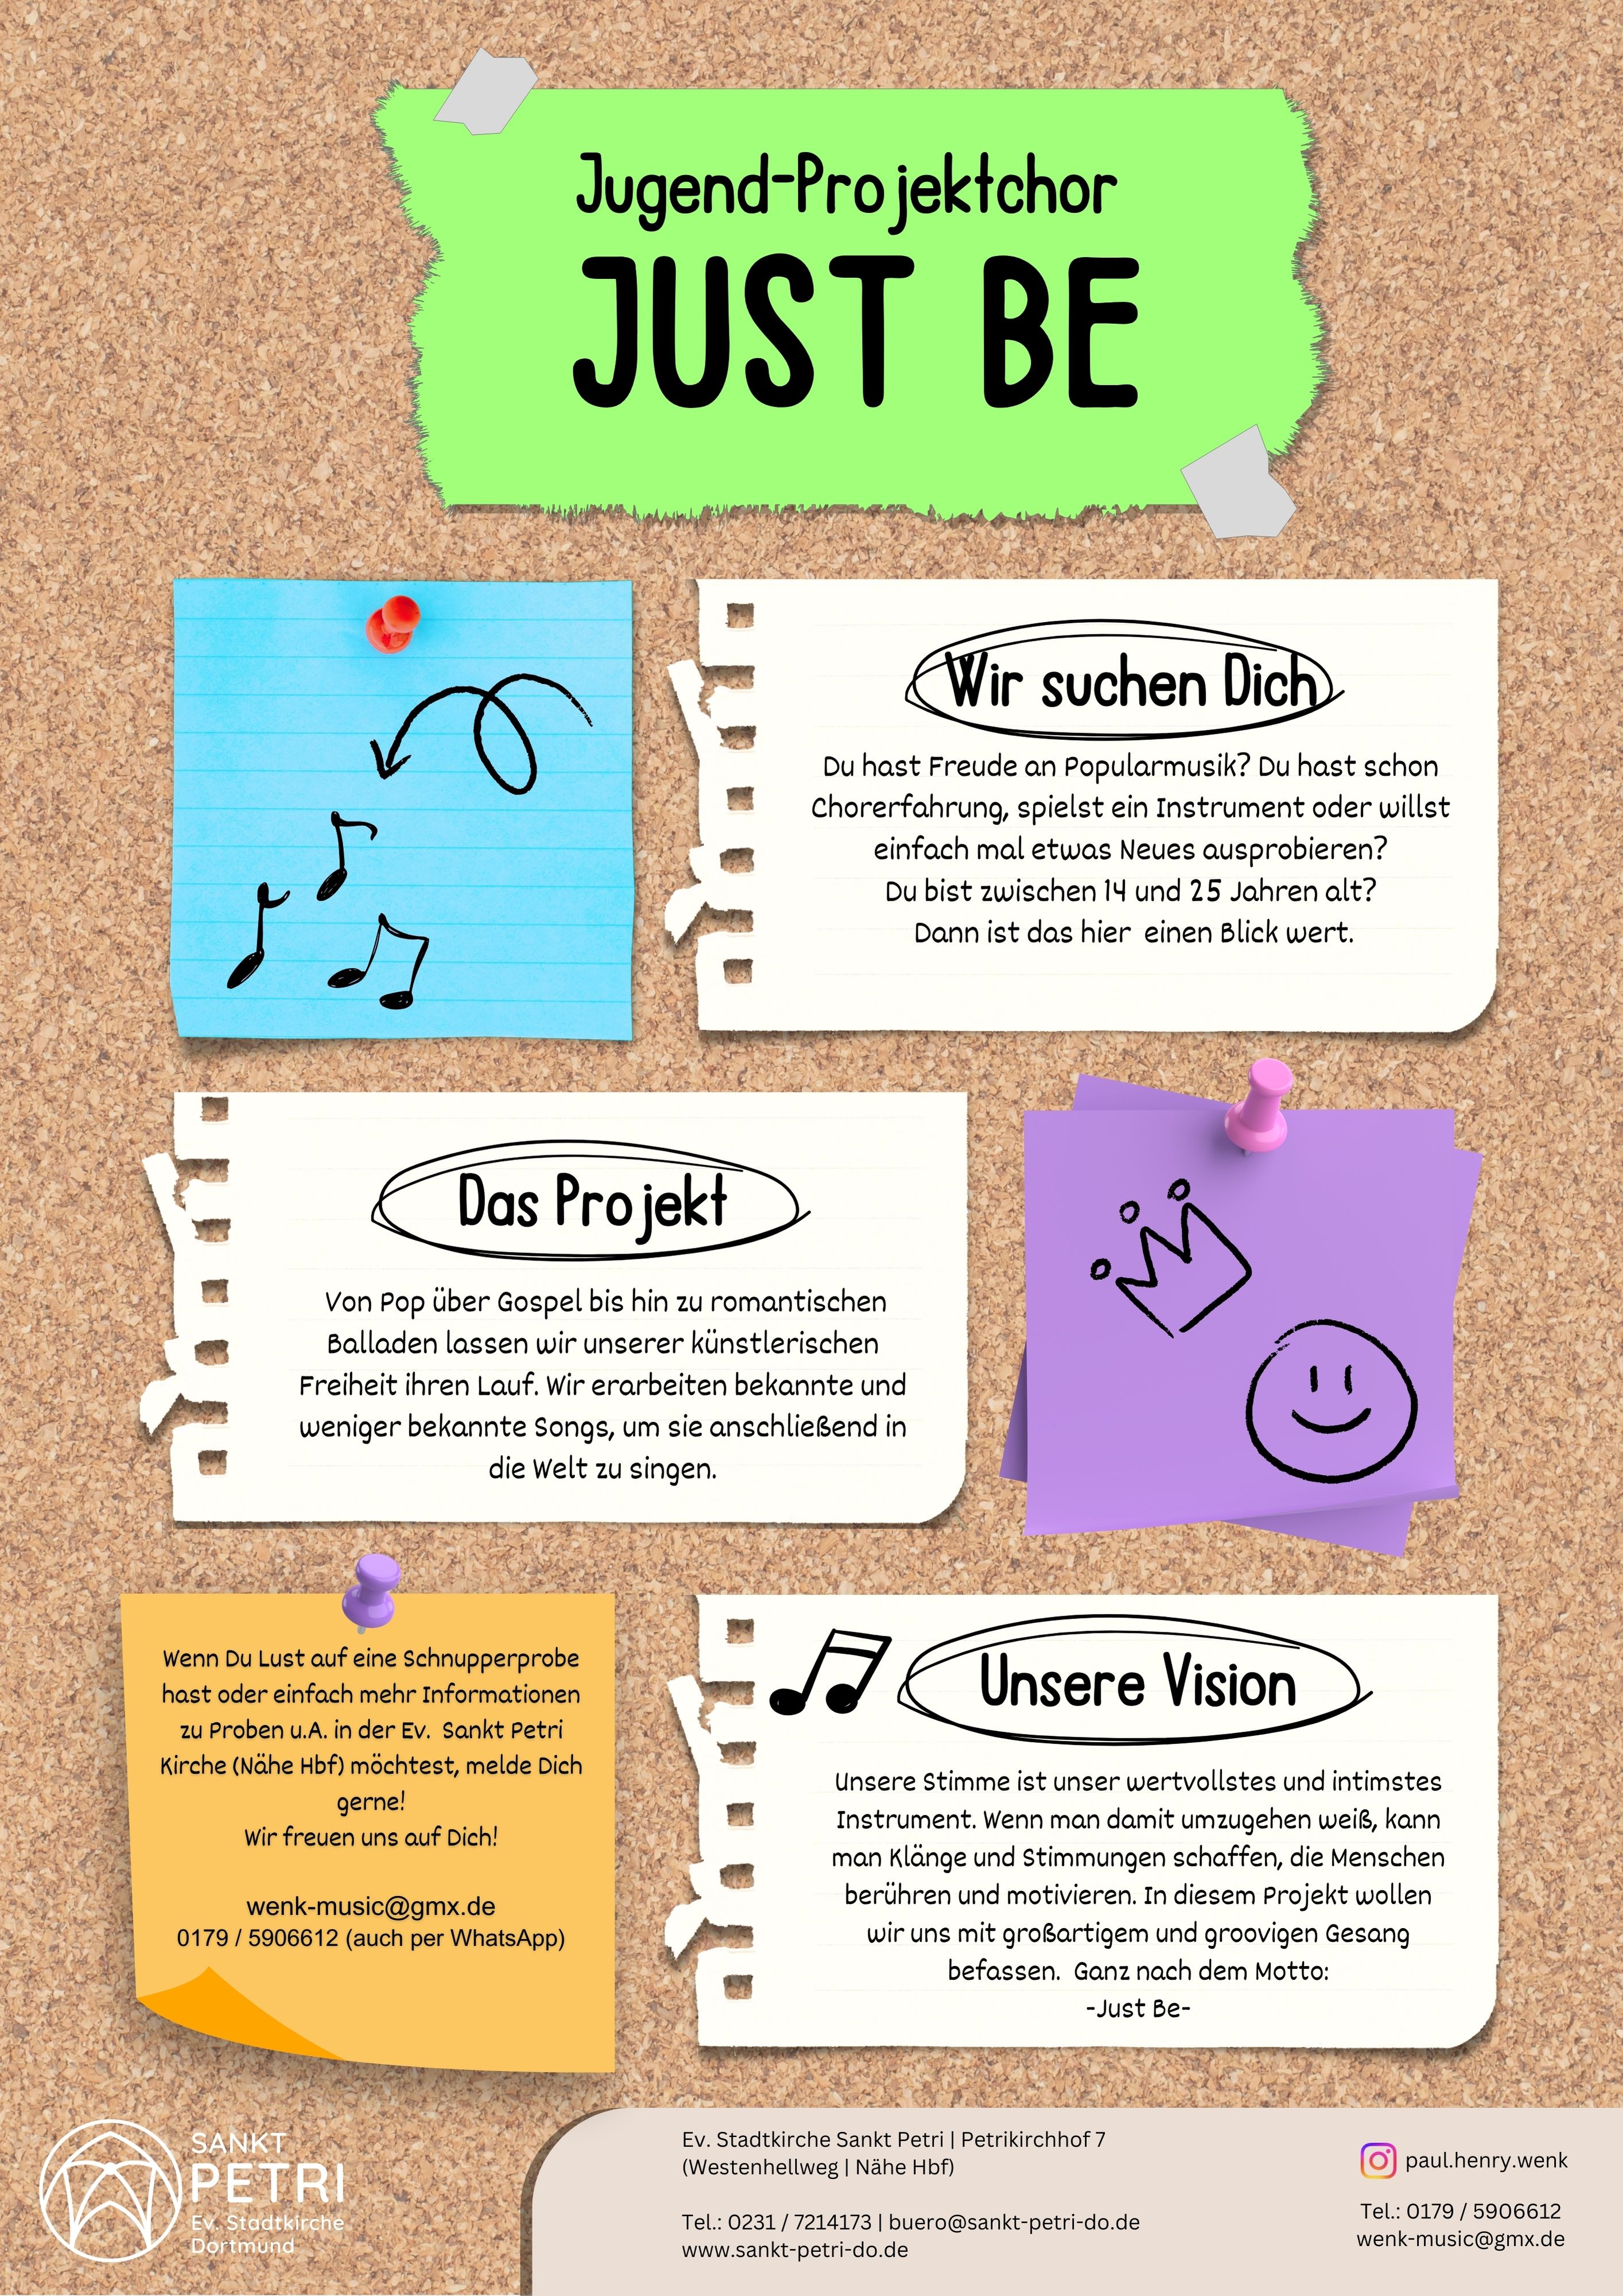 Jugend-Projektchor
JUST BE
Wir suchen Dich
Du hast Freude an Popularmusik? Du hast schon
Chorerfahrung, spielst ein Instrument oder willst
einfach mal etwas Neues ausprobieren?
Du bist zwischen 14 und 25 Jahren alt?
Dann ist das hier einen Blick wert.
Das Projekt
Von Pop über Gospel bis hin zu romantischen
Balladen lassen wir unserer künstlerischen
Freiheit ihren Lauf. Wir erarbeiten bekannte und
weniger bekannte Songs, um sie anschließend in
die Welt zu singen.
Wenn Du Lust auf eine Schnupperprobe
hast oder einfach mehr Informationen
zu Proben u.A. in der Ev. Sankt Petri
Kirche (Nähe Hbf) möchtest, melde Dich
gerne!
Wir freuen uns auf Dich!
wenk-music@gmx.de
0179 / 5906612 (auch per WhatsApp)
Unsere Vision
Unsere Stimme ist unser wertvollstes und intimstes
Instrument. Wenn man damit umzugehen weiß, kann
man Klänge und Stimmungen schaffen, die Menschen
berühren und motivieren. In diesem Projekt wollen
wir uns mit großartigem und groovigen Gesang
befassen. Ganz nach dem Motto:
-Just Be-
SANKT
PETRI
Ev. Stadtkirche
Dortmund
Ev. Stadtkirche Sankt Petri | Petrikirchhof 7
(Westenhellweg | Nähe Hbf)
Tel.: 0231 / 7214173 | buero@sankt-petri-do.de
www.sankt-petri-do.de
paul.henry.wenk
Tel.: 0179 / 5906612
wenk-music@gmx.de